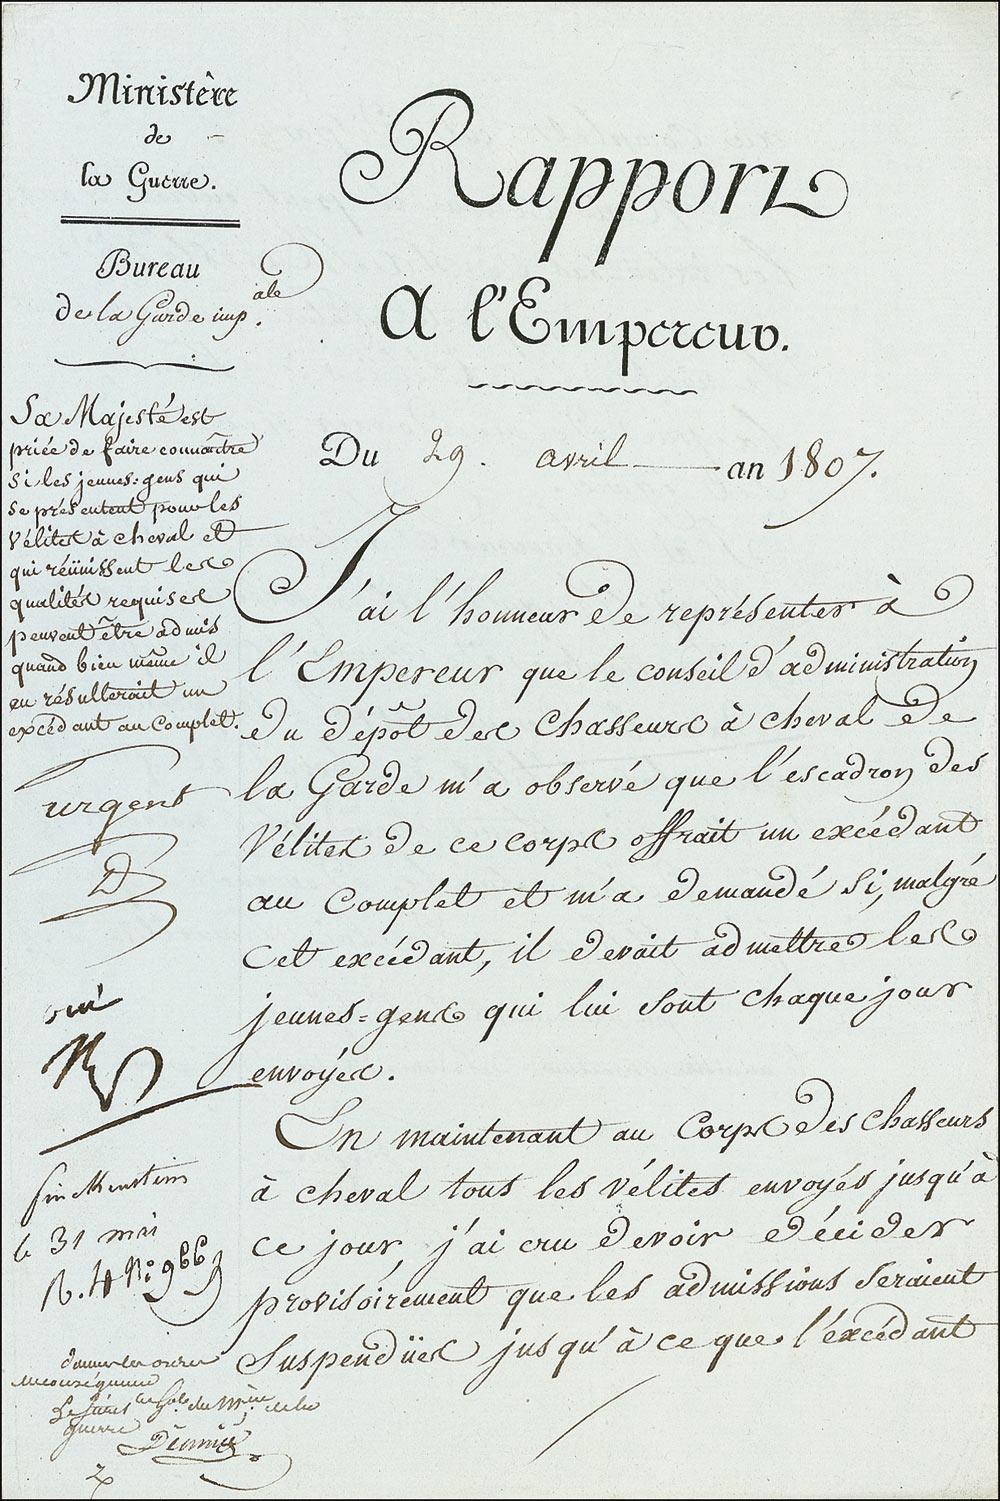 Ministère
de
la Guerre.
Bureau
de la Garde imp.ale
Rapport
A l'Empereur.
Du 29. avril an 1807.
Sa Majesté est
priée de faire connaitre
si les jeunes=gens qui
se présentent pour les
Vélites à cheval et
qui réünissent les
qualités requises
peuvent être admis
quand bien même il
en résulterait un
excédant au complet.
urgent
D
oui
N
finckenstein
le 31 mai
R. H N.º 966
donner les ordres
en conséquence
Le guerre
Denniée
J'ai l'honneur de représenter à
l'Empereur que le conseil d'administration
du dépôt des Chasseurs à cheval de
la Garde m'a observé que l'escadron des
Vélites de ce corps offrait un excédant
au Complet et m'a demandé si, malgré
cet excédant, il devait admettre les
jeunes=gens qui lui sont chaque jour
envoyés.
En maintenant au Corps des Chasseurs
à cheval tous les vélites envoyés jusqu'à
ce jour, j'ai cru devoir décider
provisoirement que les admissions seraient
suspendües jusqu'à ce que l'excédant